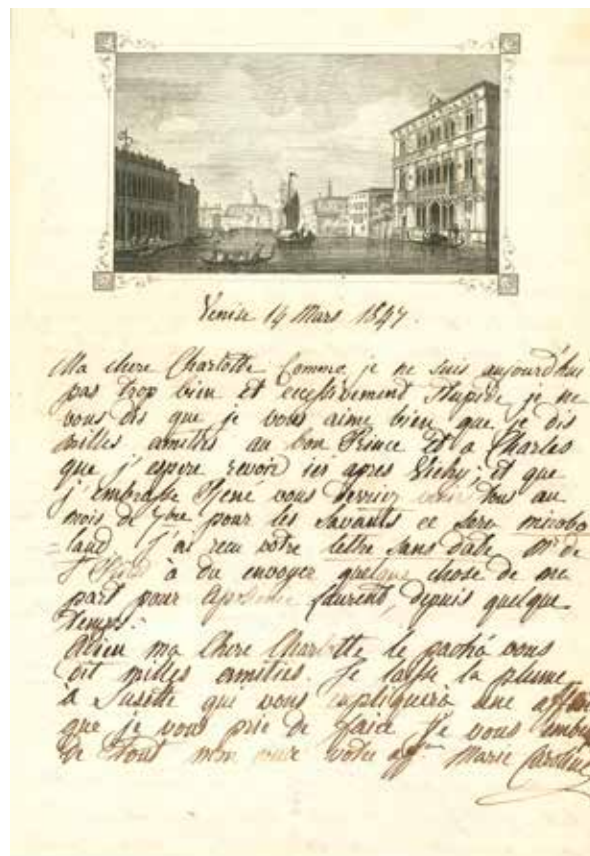 Venise 14 Mars 1847.
Ma chere Charlotte Comme je ne suis aujourd'hui
pas trop bien et excessivement stupide je ne
vous dis que je vous aime bien que je dis
milles amities au bon Prince et a Charles
que j'espere revoir ici apres Vichy; et que
j'embrasse René vous devriez venir tous au
mois de 7bre pour les savants ce sera mirobo
land J'ai recu votre lettre sans date Mr de
à du envoyer quelque chose de ma
part pour Laurent, depuis quelque
temps.
Adieu ma chere Charlotte le pacha vous
dit milles amities. Je laisse la plume
à Susette qui vous expliquera une
que je vous prie de faire Je vous
de tout mon votre aff Marie Caroline